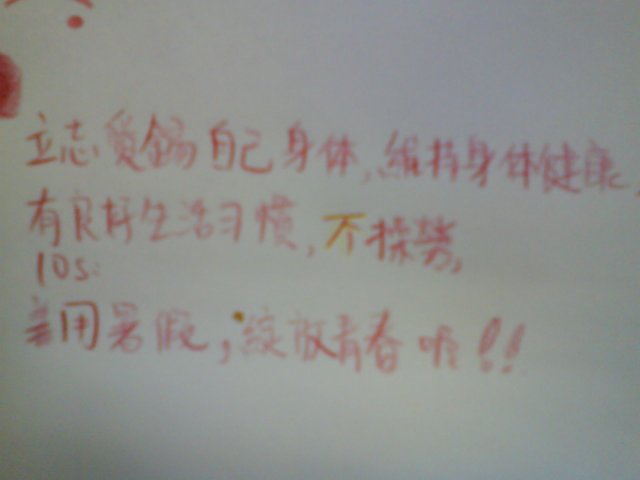 立志爱锅自己身体,维持身体健康,
有良好生活习惯,不操劳,
10s:
善用暑假,绽放青春呢!!